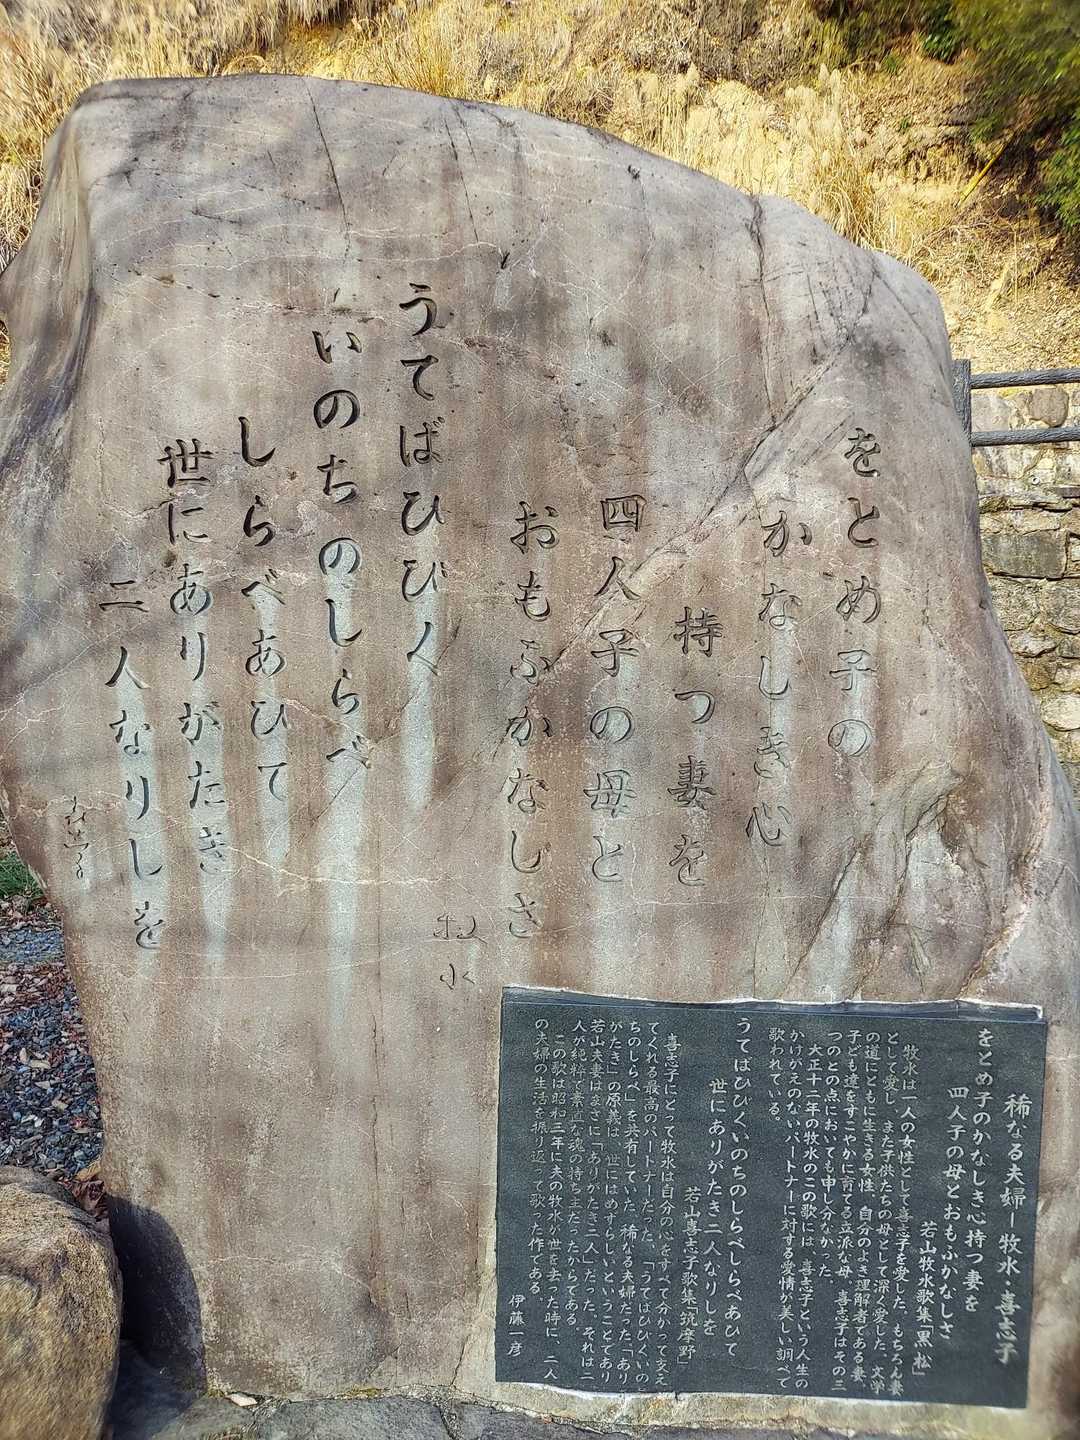 をとめ子の
かなしき心
持つ妻を
四人子の母と
おもふかなしさ
牧水
うてばひびく
いのちのしらべ
しらべあひて
世にありがたき
二人なりしを
喜志子
稀なる夫婦ー牧水・喜志子
をとめ子のかなしき心持つ妻を
四人子の母とおもふかなしさ
若山牧水歌集「黒松」
牧水は一人の女性として喜志子を愛した。もちろん妻
として愛し、また子供たちの母として深く愛した。文学
の道にともに生きる女性、自分のよき理解者である妻、
子ども達をすこやかに育てる立派な母、喜志子はその三
つのどの点においても申し分なかった。
大正十二年の牧水のこの歌には、喜志子という人生の
かけがえのないパートナーに対する愛情が美しい調べで
歌われている。
うてばひびくいのちのしらべしらべあひて
世にありがたき二人なりしを
若山喜志子歌集「筑摩野」
喜志子にとって牧水は自分の心をすべて分かって支え
てくれる最高のパートナーだった。「うてばひびくいの
ちのしらべ」を共有していた、稀なる夫婦だった「あり
がたき」の原義は、世にはめずらしいということであり
若山夫妻はまさに「ありがたき二人」だった。それは二
人が純粋で素直な魂の持ち主だったからである。
この歌は昭和三年に夫の牧水が世を去った時に、二人
の夫婦の生活を振り返って歌った作である。
伊藤一彦